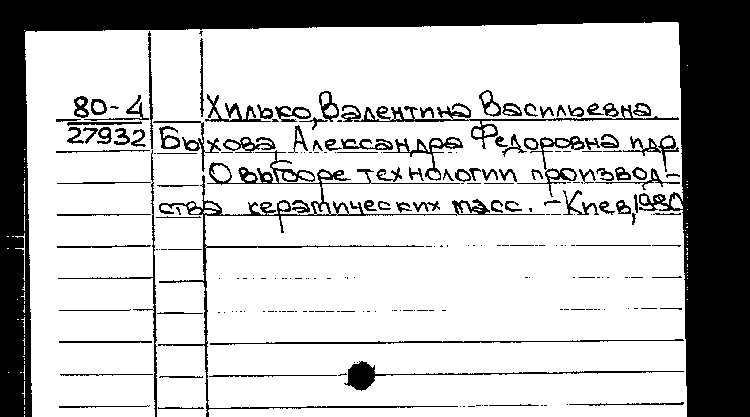 80-4 Хилько, Валентина Васильевна.
27932 Быхова, Александра Федоровна и др.
О выборе технологии производ-
ства керамических масс. - Киев, 1980